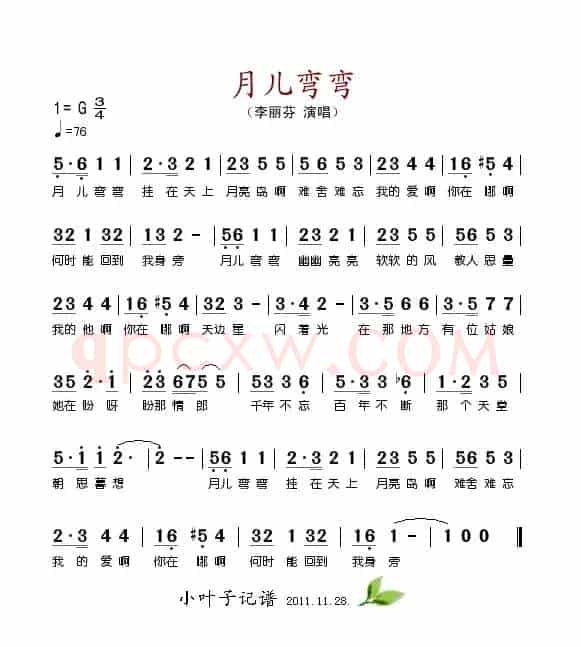 月儿弯弯
1=G 3/4
（李丽芬 演唱）
♩=76
5·6 1 1 | 2·3 2 1 | 23 5 5 | 56 5 3 | 23 4 4 | 16 #5 4
月 儿 弯 弯 挂 在 天 上 月亮 岛 啊 难舍 难 忘 我的 爱 啊 你在 哪 啊
32 1 32 | 132 - | 56 1 1 | 63 5 5 | 23 5 5 | 56 5 3
何时 能 回到 我身旁 月儿 弯 弯 幽幽 亮 亮 软软 的 风 教人 思 量
23 4 4 | 16 #5 4 | 32 3 - | 3·4 2 | 3·5 6 6 | 3·5 7 7
我的 他 啊 你在 哪 啊 天边 星 闪 着 光 在 那 地 方 有 位 姑 娘
35 2·1 | 23 675 5 | 53 3 5 | 3·3 3 b6 | 1·2 3 5
她在 盼 呀 盼那 情 郎 千年 不 忘 百 年 不 断 那 个 天 堂
5·1 1 2· | 2 - - | 56 1 1 | 2·3 2 1 | 23 5 5 | 56 5 3
朝 思 暮 想 月儿 弯 弯 挂 在 天 上 月亮 岛 啊 难舍 难 忘
2·3 4 4 | 16 #5 4 | 32 1 32 | 16 1 - | 1 0 0
我 的 爱 啊 你在 哪 啊 何时 能 回到 我身 旁
qpcxw.COM
小叶子记谱 2011.11.28.